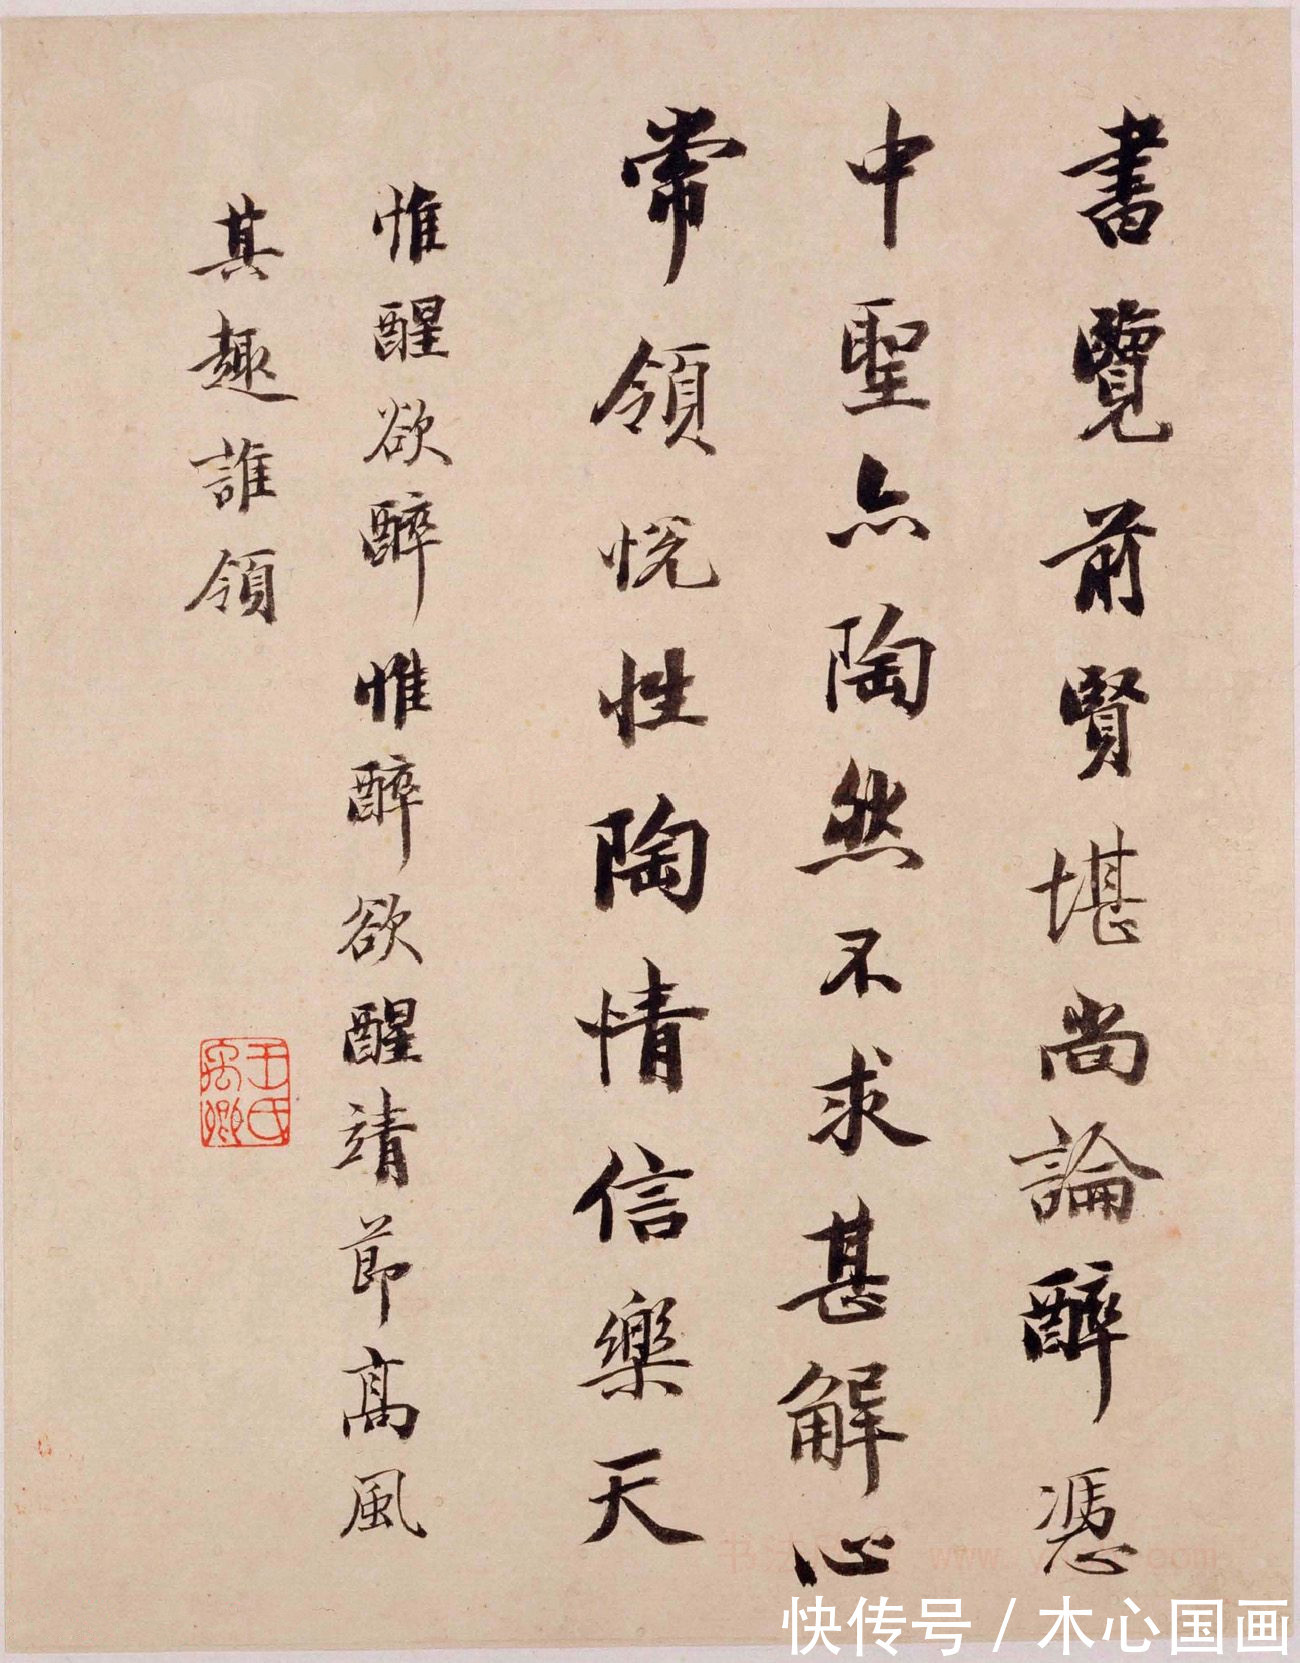 書覽前賢堪尚論醉憑
中聖亦陶然不求甚解心
常領悦性陶情信樂天
惟醒欲醉惟醉欲醒靖節高風
其趣誰領
快传号 / 木心国画